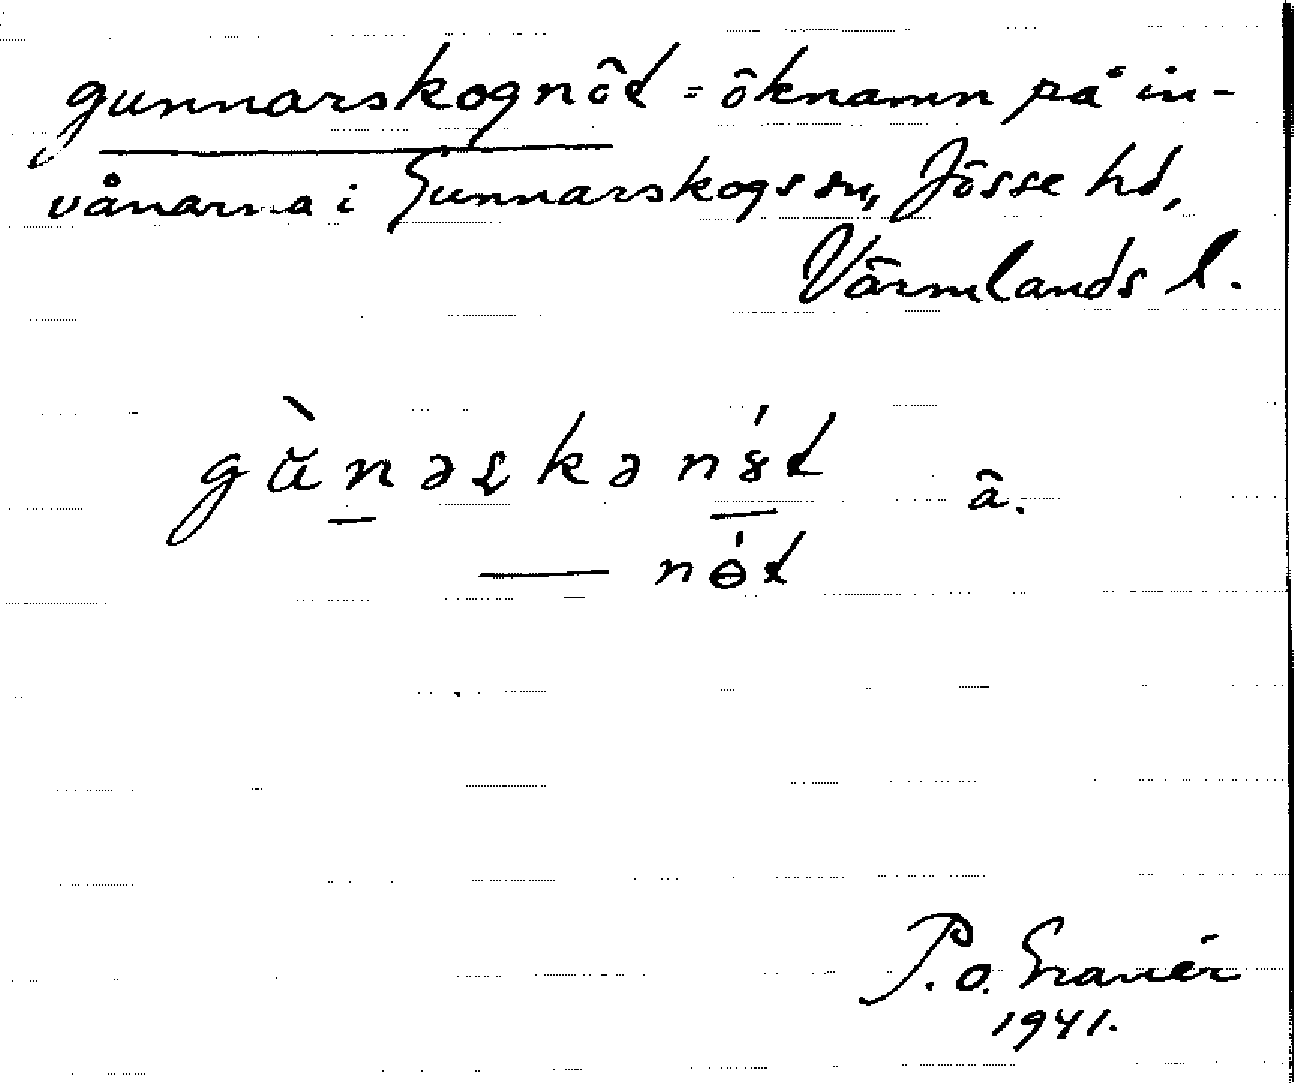 gunnarskognöt = öknamn på in-
vånarna i Gunnarskogs sn, Jösse hd,
Värmlands l.
ä.
P.O. Granér
1941.